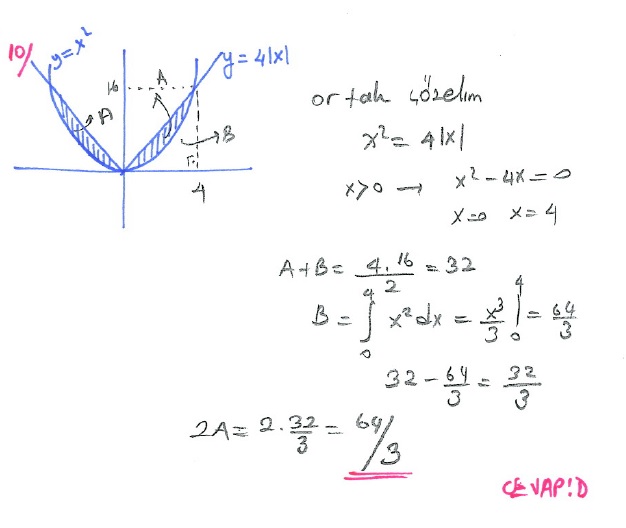 10/
y=x²
y=4|x|
16
A
A
B
4
ortak çözelim
x²=4|x|
x>0 → x²-4x=0
x=0 x=4
A+B= 4.16/2 = 32
B = ∫₀⁴ x²dx = x³/3 |₀⁴ = 64/3
32 - 64/3 = 32/3
2A= 2.32/3 = 64/3
CEVAP!D